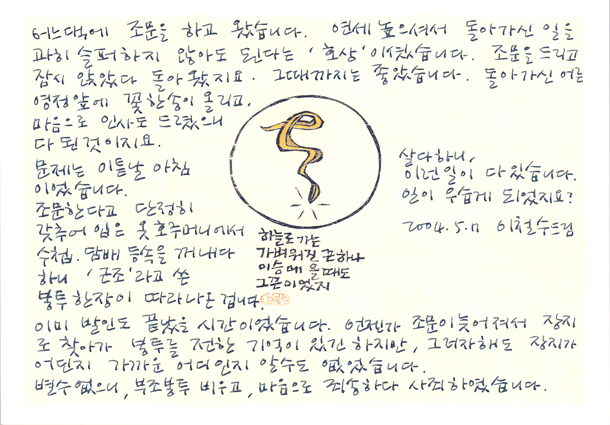 어느댁에 조문을 하고 왔습니다. 연세 높으셔서 돌아가신 일을
과히 슬퍼하지 않아도 된다는 '호상'이셨습니다. 조문을 드리고
잠시 앉았다 돌아왔지요. 그때까지는 좋았습니다. 돌아가신 어른
영정앞에 꽃 한송이 올리고,
마음으로 인사도 드렸으니
다 된 것이지요.
문제는 이튿날 아침
이었습니다.
조문한다고 단정히
갖추어 입은 옷 호주머니에서
수첩. 담배 등속을 꺼내다
하니 '근조'라고 쓴
봉투 한장이 따라나온 겁니다.
하늘로 가는
가벼워질 끈 하나
이승에 올 때도
그끈이었지
살다하니,
이런 일이 다 있습니다.
일이 우습게 되었지요?
2004.5.11 이철수드림
이미 발인도 끝났을 시간이었습니다. 언젠가 조문이 늦어져서 장지
로 찾아가 봉투를 전한 기억이 있긴 하지만, 그러자해도 장지가
어딘지 가까운 어디인지 알수도 없었습니다.
별수 없으니, 부조봉투 비우고, 마음으로 죄송하다 사죄하였습니다.